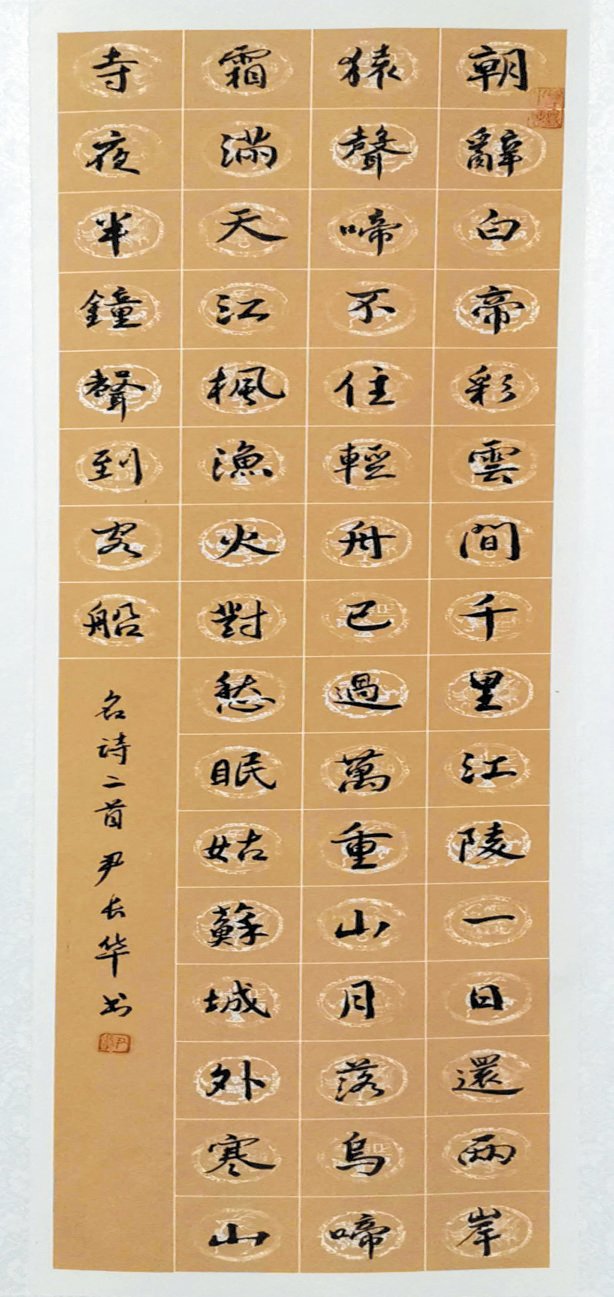 朝辭白帝彩雲間千里江陵一日還兩岸
猿聲啼不住輕舟已過萬重山月落烏啼
霜滿天江楓漁火對愁眠姑蘇城外寒山
寺夜半鐘聲到客船
名詩二首尹长华书